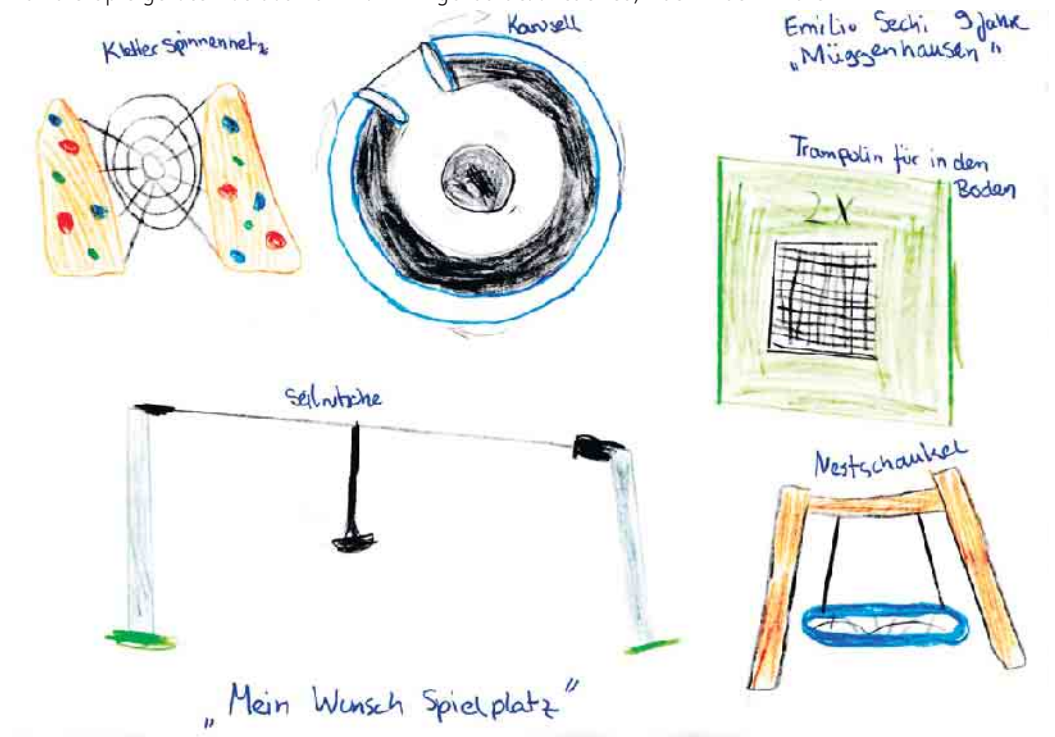 Kletter Spinnennetz
Karusell
Emilio Sechi 9 Jahre
„Müggenhausen"
Trampolin für in den
Boden
2x
Seilrutsche
Nestschaukel
„Mein Wunsch Spielplatz"